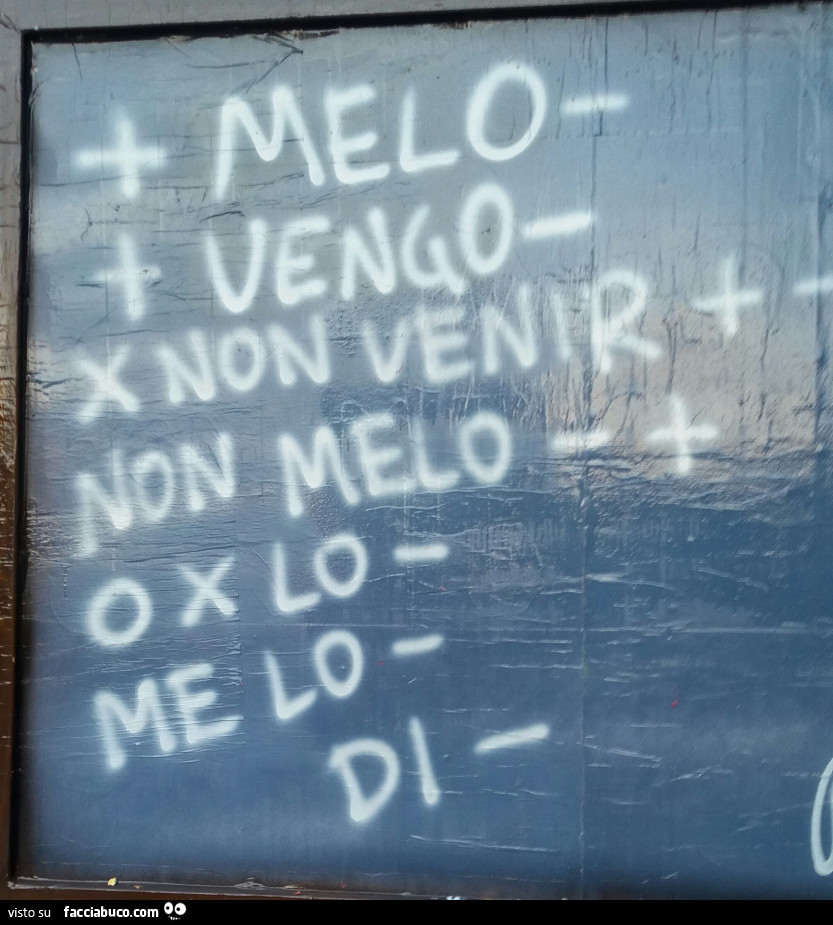 + MELO-
+ VENGO-
X NON VENIR + -
NON MELO - +
O X LO -
ME LO -
DI -
visto su facciabuco.com